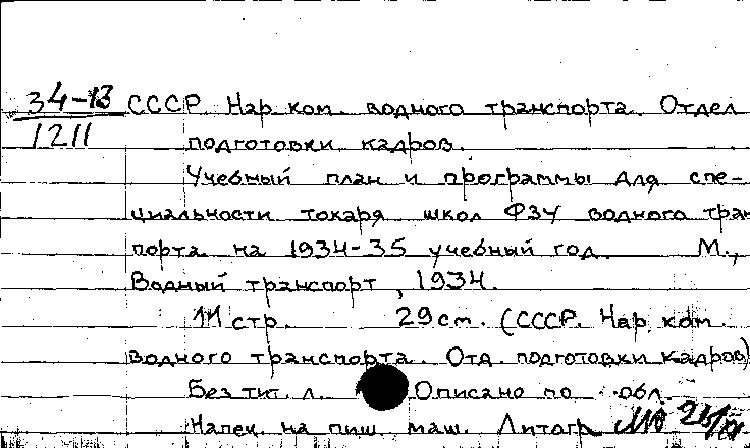 34-13 СССР. Нар. ком. водного транспорта. Отдел
1211 подготовки кадров.
Учебный план и программы для спе-
циальности токаря школ ФЗУ водного транс
порта на 1934-35 учебный год. М.,
Водный транспорт, 1934.
11 стр. 29 см. (СССР. Нар. ком.
водного транспорта. Отд. подготовки кадров)
Без тит. л. Описано по обл.
Напеч. на пиш. маш. Литогр